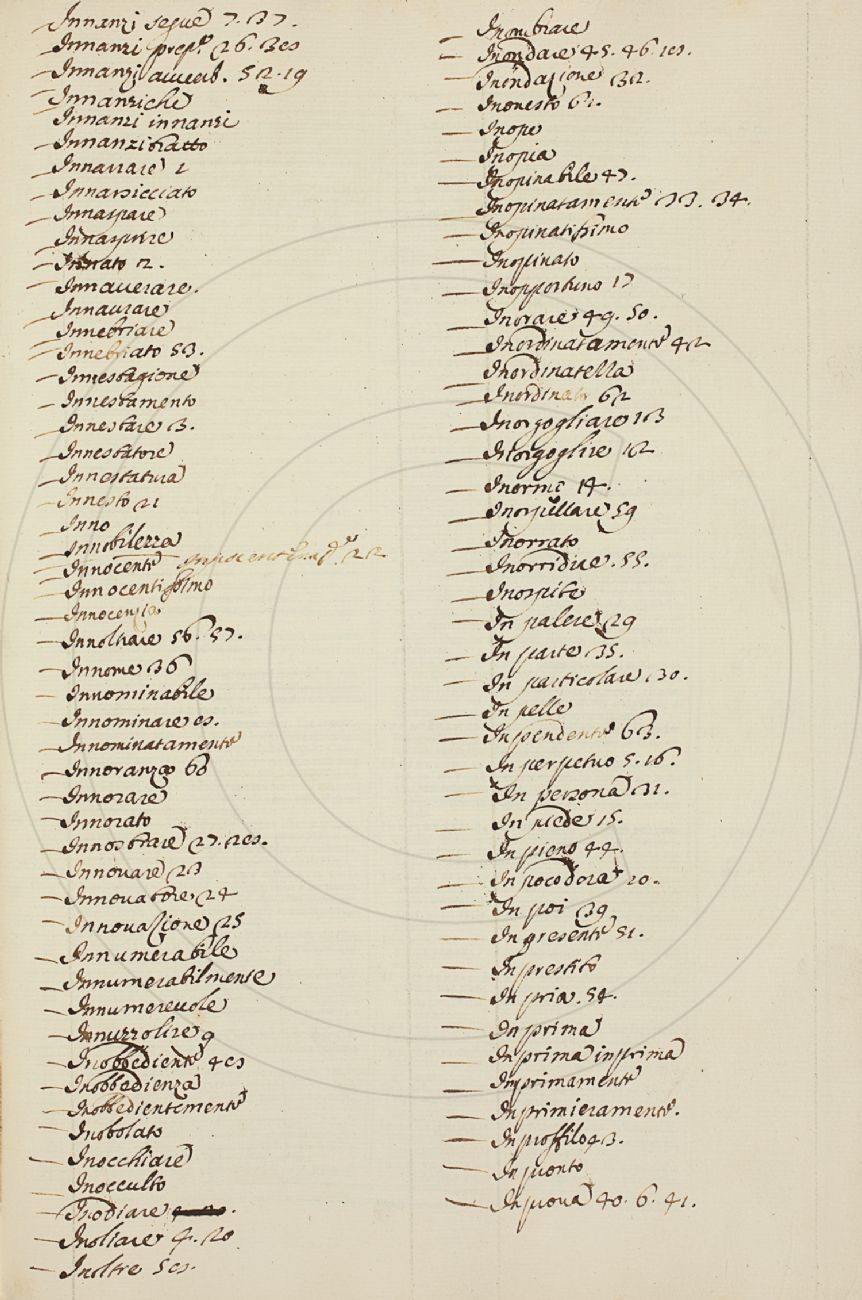 Innanzi segue 7. 37.
Innanzi prep.e 26. 38
Innanzi avverb. 52. 19
Innanziché
Innanzi innanzi
Innanzitratto
Innarrare 1
Innarsicciato
Innaspare
Innasprire
Innato 2.
Innaverare.
Innaurare
Innebriare
Innebriato 53.
Innestagione
Innestamento
Innestare 3.
Innestatore
Innestatura
Innesto 21
Inno
Innobilezza
Innocente
Innocentissimo
Innocenza
Innoltrare 56. 57.
Innome 36
Innominabile
Innominare 8.
Innominatamente
Innoranza 60
Innorare
Innorato
Innostrare 27. 28.
Innovare 23
Innovatore 24
Innovazione 25
Innumerabile
Innumerabilmente
Innumerevole
Innuzzolire 9
Inobbediente 48
Inobbedienza
Inobbedientemente
Inobolato
Inocchiare
Inocculto
Inodiare
Inoliare 4. 20
Inoltre 58.
Inombrare
Inondare 45. 46. 18.
Inondazione 32.
Inonesto 61.
Inope
Inopia
Inopinabile 47.
Inopinatamente 33. 34.
Inopinatissimo
Inopinato
Inopportuno 17
Inorare 49. 50.
Inordinatamente 42
Inordinatella
Inordinato 62
Inorgogliare 13
Inorgoglire 12
Inorme 14.
Inorpellare 59
Inorrato
Inorridire. 55.
Inospite
In palese 29
In parte 35.
In particolare 30.
In pelle
Inpendente 63.
In perpetuo 5. 16.
In persona 31.
In piede 15.
In pieno 44.
In poco d'ora 10.
In poi 39
In presente 51.
In prestito
In pria. 54.
In prima
In prima inprima
Inprimamente
Inprimieramente.
In proffilo 43.
In pronto
In pruova 40. 6. 41.